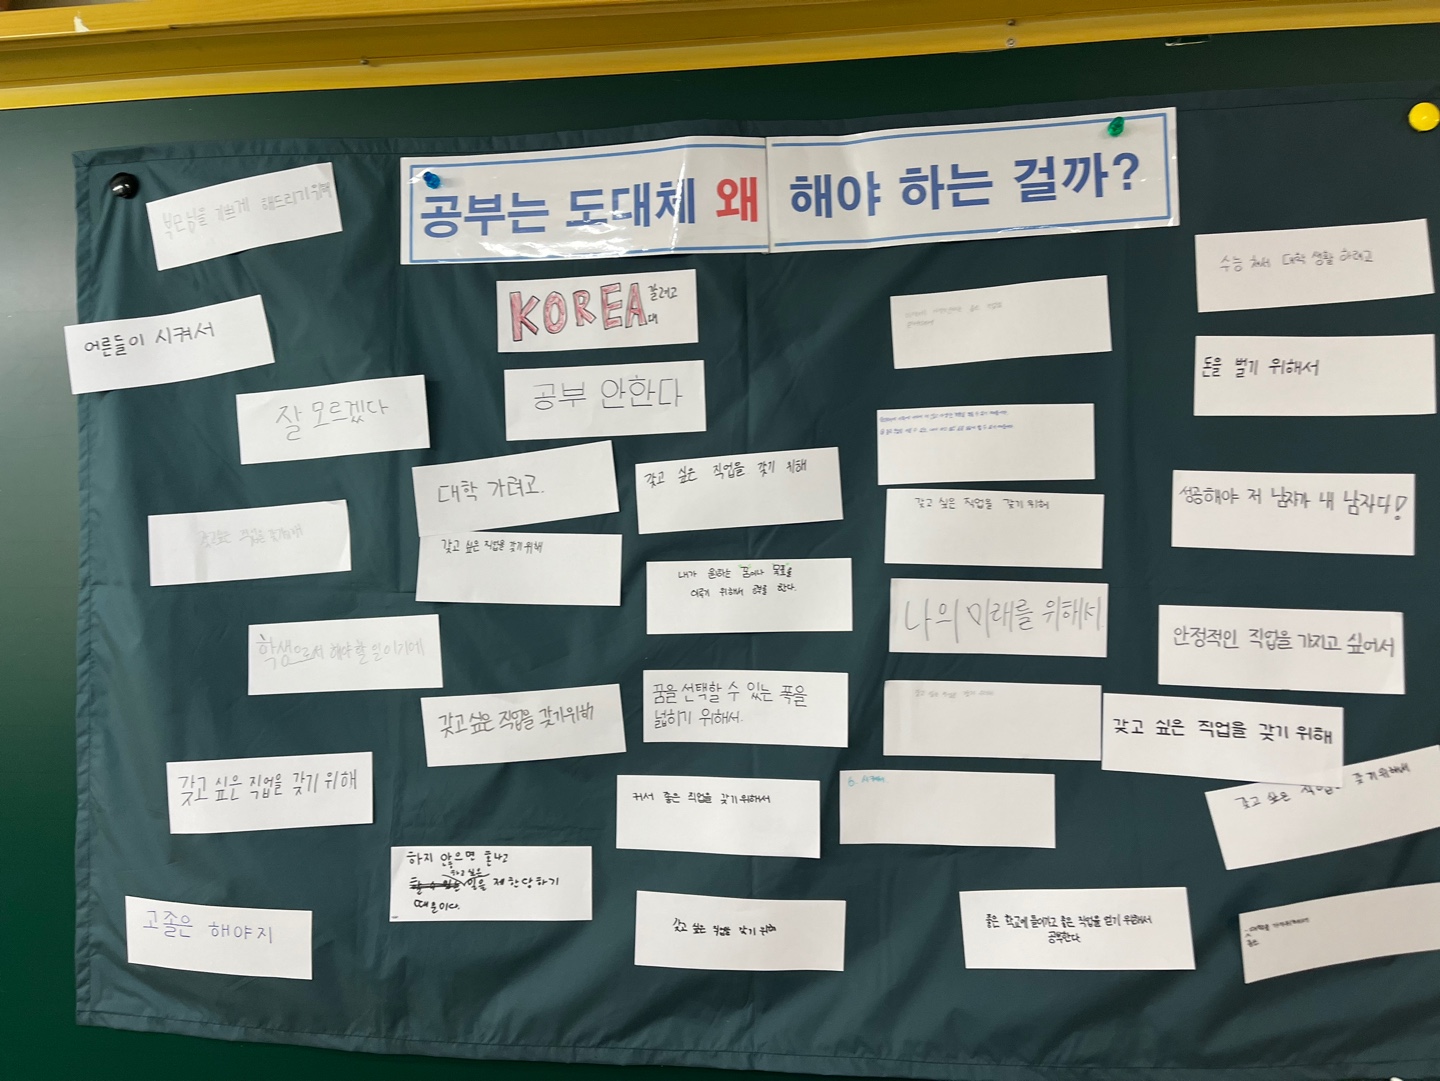 공부는 도대체 왜 해야 하는 걸까?
부모님을 기쁘게 해드리기 위해
어른들이 시켜서
잘 모르겠다
학생으로서 해야 할 일이기에
갖고 싶은 직업을 갖기 위해
고졸은 해야지
KOREA 갈려고
대
공부 안한다
대학 가려고.
갖고 싶은 직업을 갖기 위해
갖고 싶은 직업을 갖기 위해
하지 않으면 혼나고
하고 싶은
일을 제한당하기
때문이다.
갖고 싶은 직업을 갖기 위해
내가 원하는 '꿈'이나 '목표'를
이루기 위해서 공부를 한다.
꿈을 선택할 수 있는 폭을
넓히기 위해서.
커서 좋은 직업을 갖기 위해서
갖고 싶은 직업을 갖기 위해
갖고 싶은 직업을 갖기 위해
나의 미래를 위해서
좋은 학교에 들어가고 좋은 직업을 얻기 위해서
공부한다
수능 쳐서 대학 생활 하려고
돈을 벌기 위해서
성공해야 저 남자가 내 남자다!
안정적인 직업을 가지고 싶어서
갖고 싶은 직업을 갖기 위해
갖고 싶은 갖기 위해서